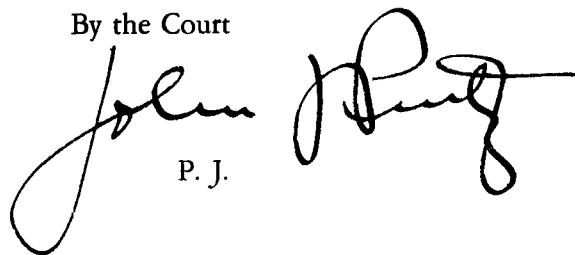 By the Court
John
P. J.